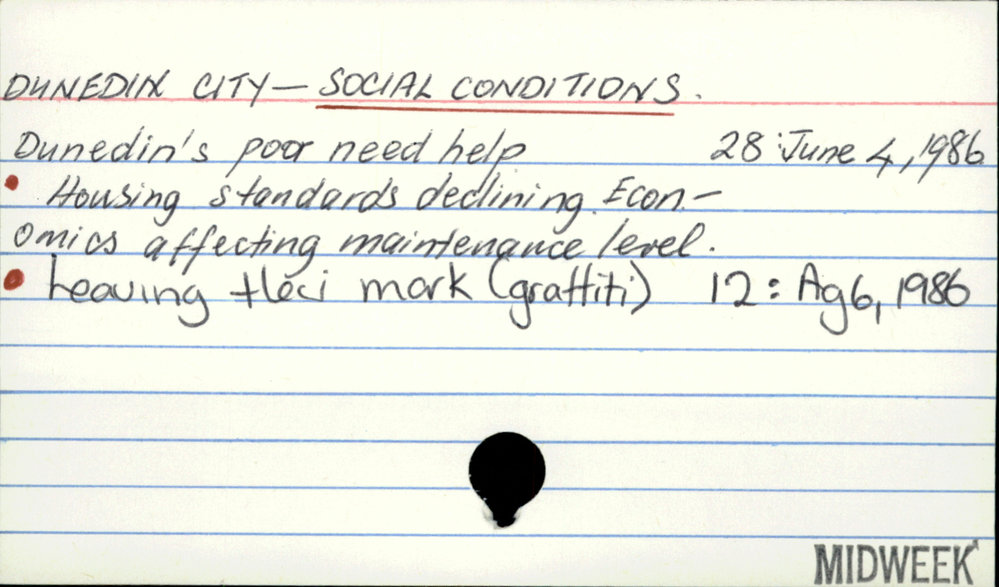 DUNEDIN CITY — SOCIAL CONDITIONS.
Dunedin's poor need help 28: June 4, 1986
• Housing standards declining. Econ-
omics affecting maintenance level.
• Leaving their mark (graffiti) 12: Ag 6, 1986
MIDWEEK